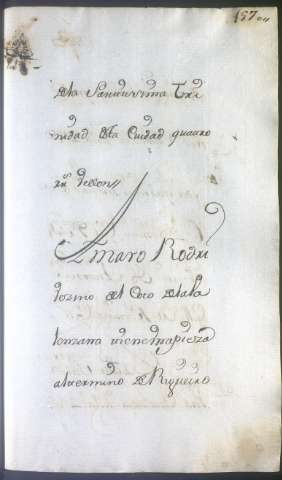 157
de la Santissima Tri
nidad de la Ciudad quatro
rs de vellon
Amaro Rodri
vezino del Coto de la
lonzana tiene una pieza
al termino de Rigueiro